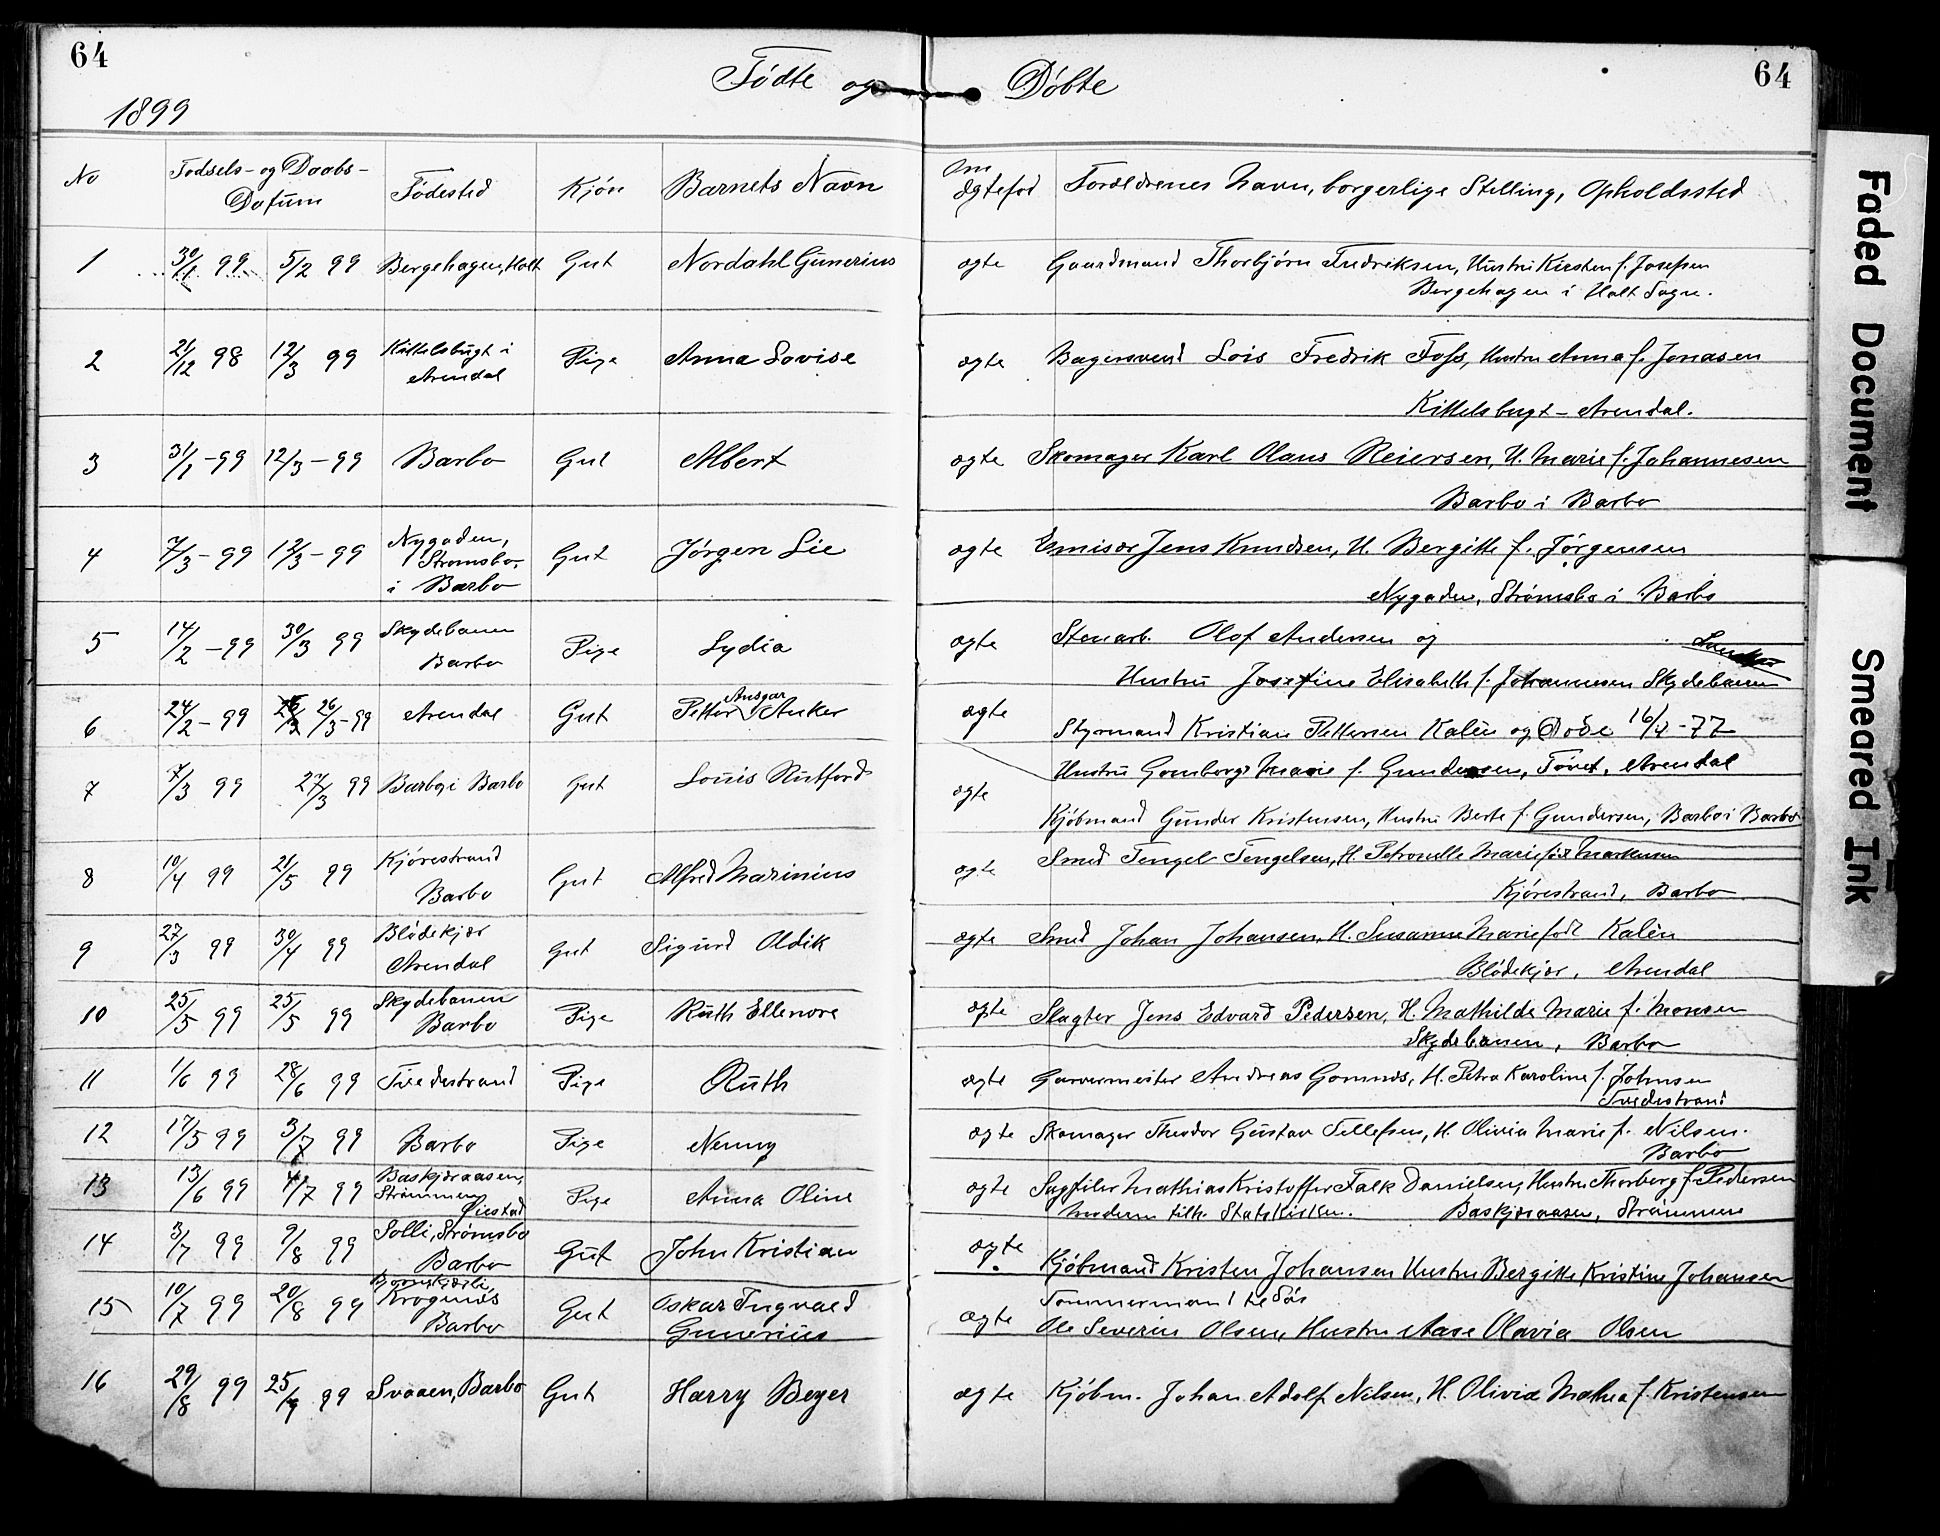 64
64
Fødte og Døbte
1899
No
Fødsels- og Daabs-
Datum
Fødested
Kjøn
Barnets Navn
Om
ægtefød
Forældrenes Navn, borgerlige Stilling, Opholdssted
1 30/1 99 5/2 99 Bergehagen, Holt Gut Nordahl Gunerius ægte Gaardmand Thorbjørn Fredriksen, Hustru Kirsten f. Josefsen
Bergehagen i Holt Sogn.
2 21/12 98 12/3 99 Kittelsbugt i Arendal Pige Anna Lovise ægte Bagersvend Lois Fredrik Foss, Hustru Anna f. Jonasen
Kittelsbugt - Arendal.
3 31/1 - 99 12/3 - 99 Barbo Gut Albert ægte Skomager Karl Olaus Reiersen, H. Marie f. Johannesen
Barbo i Barbo
4 7/3 - 99 12/3 - 99 Nygaden, Strømsbo i Barbo Gut Jørgen Lie ægte Emisær Jens Knudsen, H. Bergitte f. Jørgensen
Nygaden, Strømsbo i Barbo
5 14/2 - 99 30/3 99 Skydebanen Barbo Pige Lydia ægte Stenarb. Olof Andersen og
Hustru Josefine Elisabeth f. Johannesen Skydebanen
6 24/2 - 99 26/3 - 99 Arendal Gut Petter Ansgar Anker ægte Styrmand Kristian Pettersen Kalèn og 16/4 - 77
Hustru Gomborg Marie f. Gundersen, Arendal
7 7/3 99 27/3 99 Barbo i Barbo Gut Louis Rutford ægte Kjøbmand Gunder Kristensen, Hustru Berte f. Gundersen, Barbo i Barbo
8 10/4 99 21/5 99 Kjørestrand Barbo Gut Alfred Marinius ægte Smed Tengel Tengelsen, H. Petronelle Marie født Martensen
Kjørestrand, Barbo
9 27/3 99 30/4 99 Blødekjær Arendal Gut Sigurd Oldik ægte Smed Johan Johansen, H. Susanne Marie født Kalèn
Blødekjær, Arendal
10 25/5 99 25/5 99 Skydebanen Barbo Pige Ruth Ellenore ægte Slagter Jens Edvard Pedersen, H. Mathilde Marie f. Monsen
Skydebanen, Barbo
11 1/6 99 28/6 99 Tvedestrand Pige Ruth ægte Garvermester Andreas Gomnæs, H. Petra Karoline f. Johnsen
Tvedestrand
12 17/5 99 3/7 99 Barbo Pige Nenny ægte Skomager Theodor Gustav Tellefsen, H. Olivia Marie f. Nilsen.
Barbo
13 13/6 99 4/7 99 Baskjæraasen, Strømmen Øiestad Pige Anna Oline ægte Sagfiler Mathias Kristoffer Falk Danielsen, Hustru Thorberg f. Pedersen
Modern tilh. Statskirken. Baskjæraasen, Strømmen
14 3/7 99 9/8 99 Solli, Strømsbo Barbo Gut John Kristian ægte Kjøbmand Kristen Johansen Hustru Bergitte Kristine Johansen
15 10/7 99 20/8 99 Krognæs Barbo Gut Oskar Ingvald Gunerius ægte Tømmermand
Ole Severin Olsen, Hustru Aase Olavia Olsen
16 29/8 99 25/9 99 Svaaen, Barbo Gut Harry Beyer ægte Kjøbm. Johan Adolf Nilsen, H. Olivia Mathea f. Kristensen
Faded Document
Smeared Ink